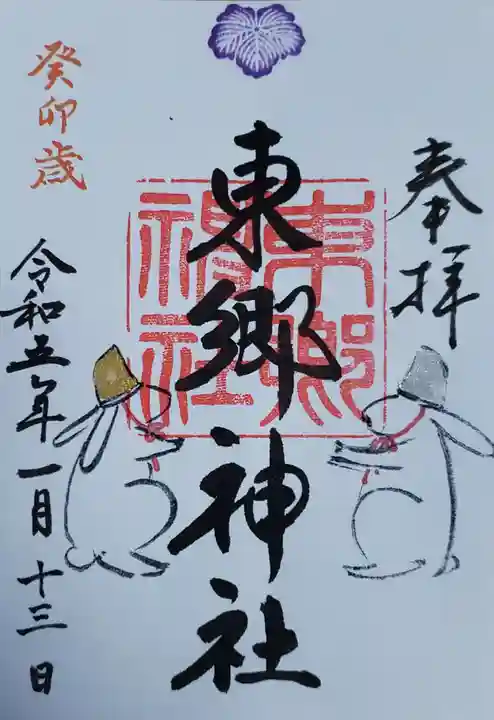 奉拝
東郷神社
東郷神社
癸卯歳
令和五年一月十三日